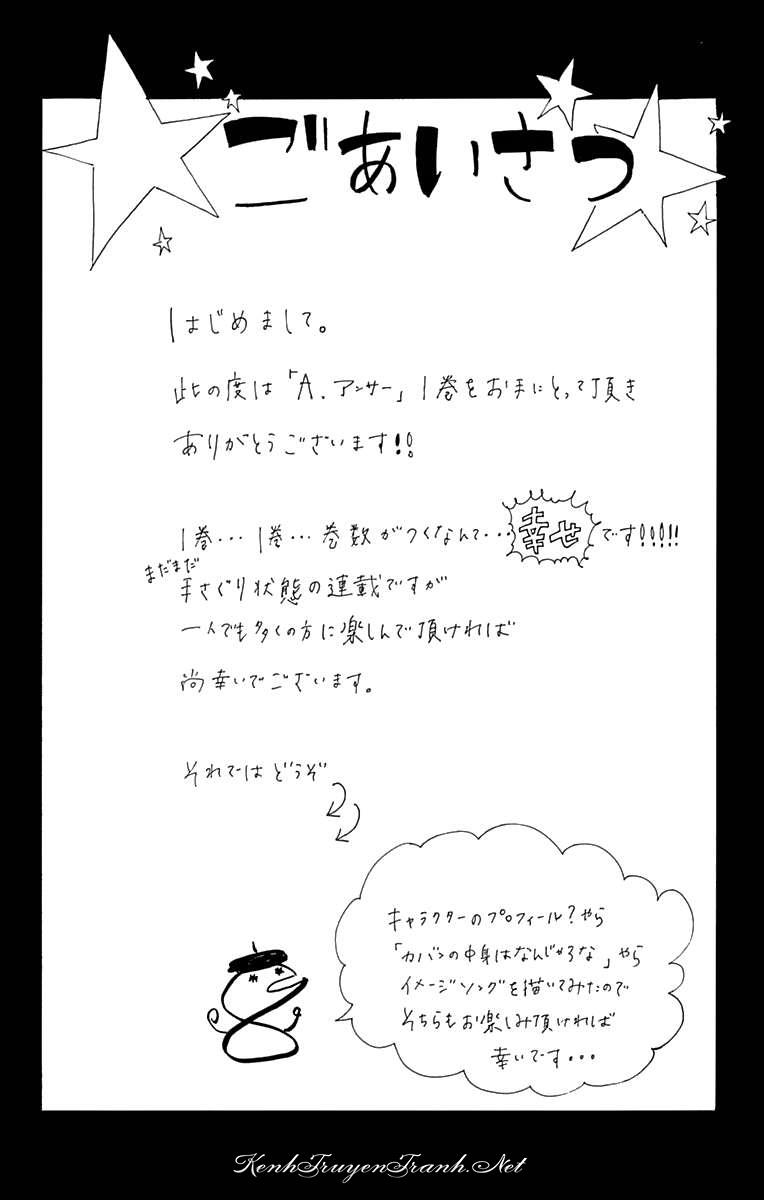 ごあいさつ
はじめまして。
此の度は「A.アンサー」1巻をお手にとって頂き
ありがとうございます!!
1巻…1巻…巻数がつくなんて…幸せです!!!!!
まだまだ
手さぐり状態の連載ですが
一人でも多くの方に楽しんで頂ければ
尚幸いでございます。
それではどうぞ
キャラクターのプロフィール?やら
「カバンの中身はなんじゃろな」やら
イメージソングを描いてみたので
そちらもお楽しみ頂ければ
幸いです...
KenhTruyenTranh.Net